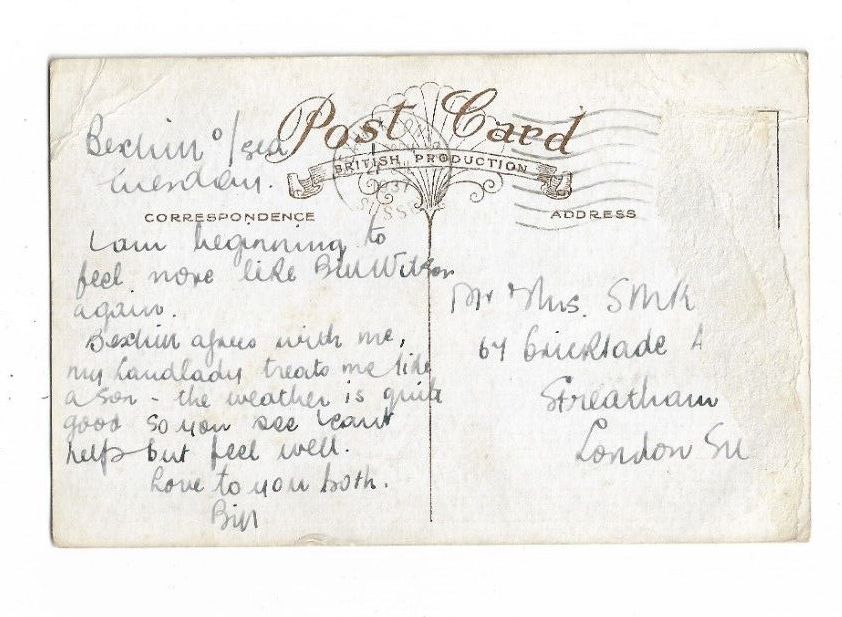 Post Card
BRITISH PRODUCTION
1937
SUSSEX
Bexhill o/sea
Tuesday.
CORRESPONDENCE
I am beginning to
feel more like Bill Wilson
again.
Bexhill agrees with me,
my Landlady treats me like
a son - the weather is quite
good so you see I cant
help but feel well.
Love to you both.
Bill
ADDRESS
Mr & Mrs. SMK
64 Cricklade A
Streatham
London SW